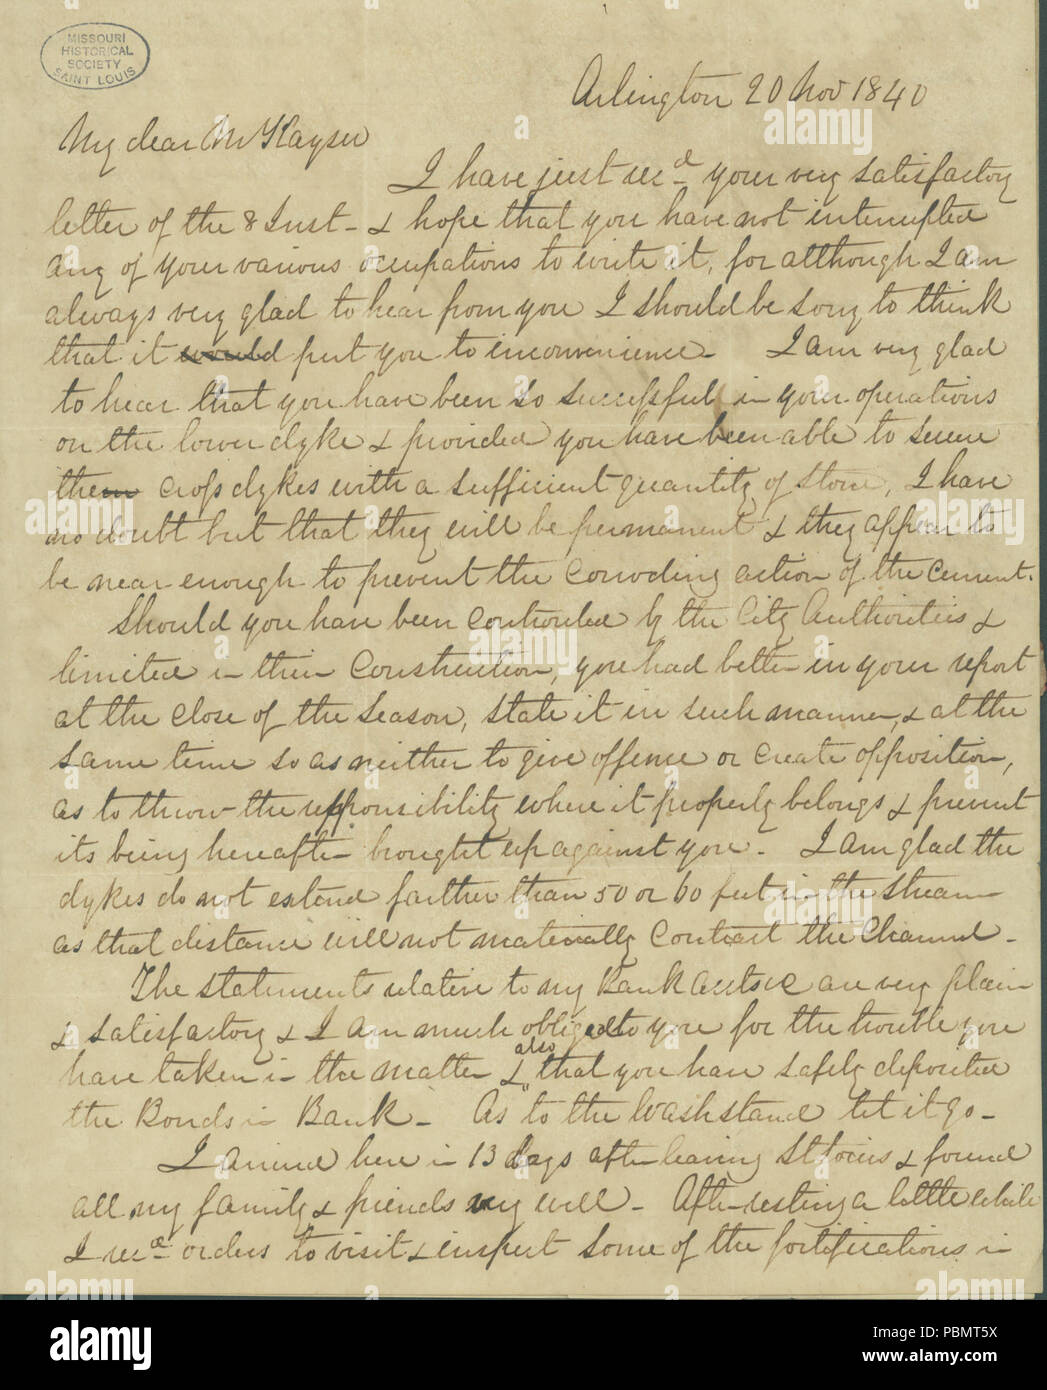 MISSOURI
HISTORICAL
SOCIETY
SAINT LOUIS
Arlington 20 Nov 1840
My dear Mr Kayser
I have just recd your very satisfactory
letter of the 8 Inst - & hope that you have not interrupted
any of your various occupations to write it, for although I am
always very glad to hear from you I should be sorry to think
that it would put you to inconvenience - I am very glad
to hear that you have been so successful in your operations
on the lower dyke & provided you have been able to secure
them cross dykes with a sufficient quantity of stone, I have
no doubt but that they will be permanent & they appear to
be near enough to prevent the corroding action of the current.
Should you have been controuled by the City Authorities &
limited in their construction, you had better in your report
at the close of the season, state it in such manner, & at the
same time so as neither to give offence or create opposition,
as to throw the responsibility where it properly belongs & prevent
its being hereafter brought up against you - I am glad the
dykes do not extend farther than 50 or 60 feet in the stream
as that distance will not materially contract the channel -
The statements relative to my Bank accts are very plain
& satisfactory & I am much obliged to you for the trouble you
have taken in the matter & also that you have safely deposited
the Bonds in Bank - As to the Washstand let it go -
I arrived here in 13 days after leaving St Louis & found
all my family & friends very well - After resting a little while
I recd orders to visit & inspect some of the fortifications in
alamy
Image ID: PBMT5X
www.alamy.com